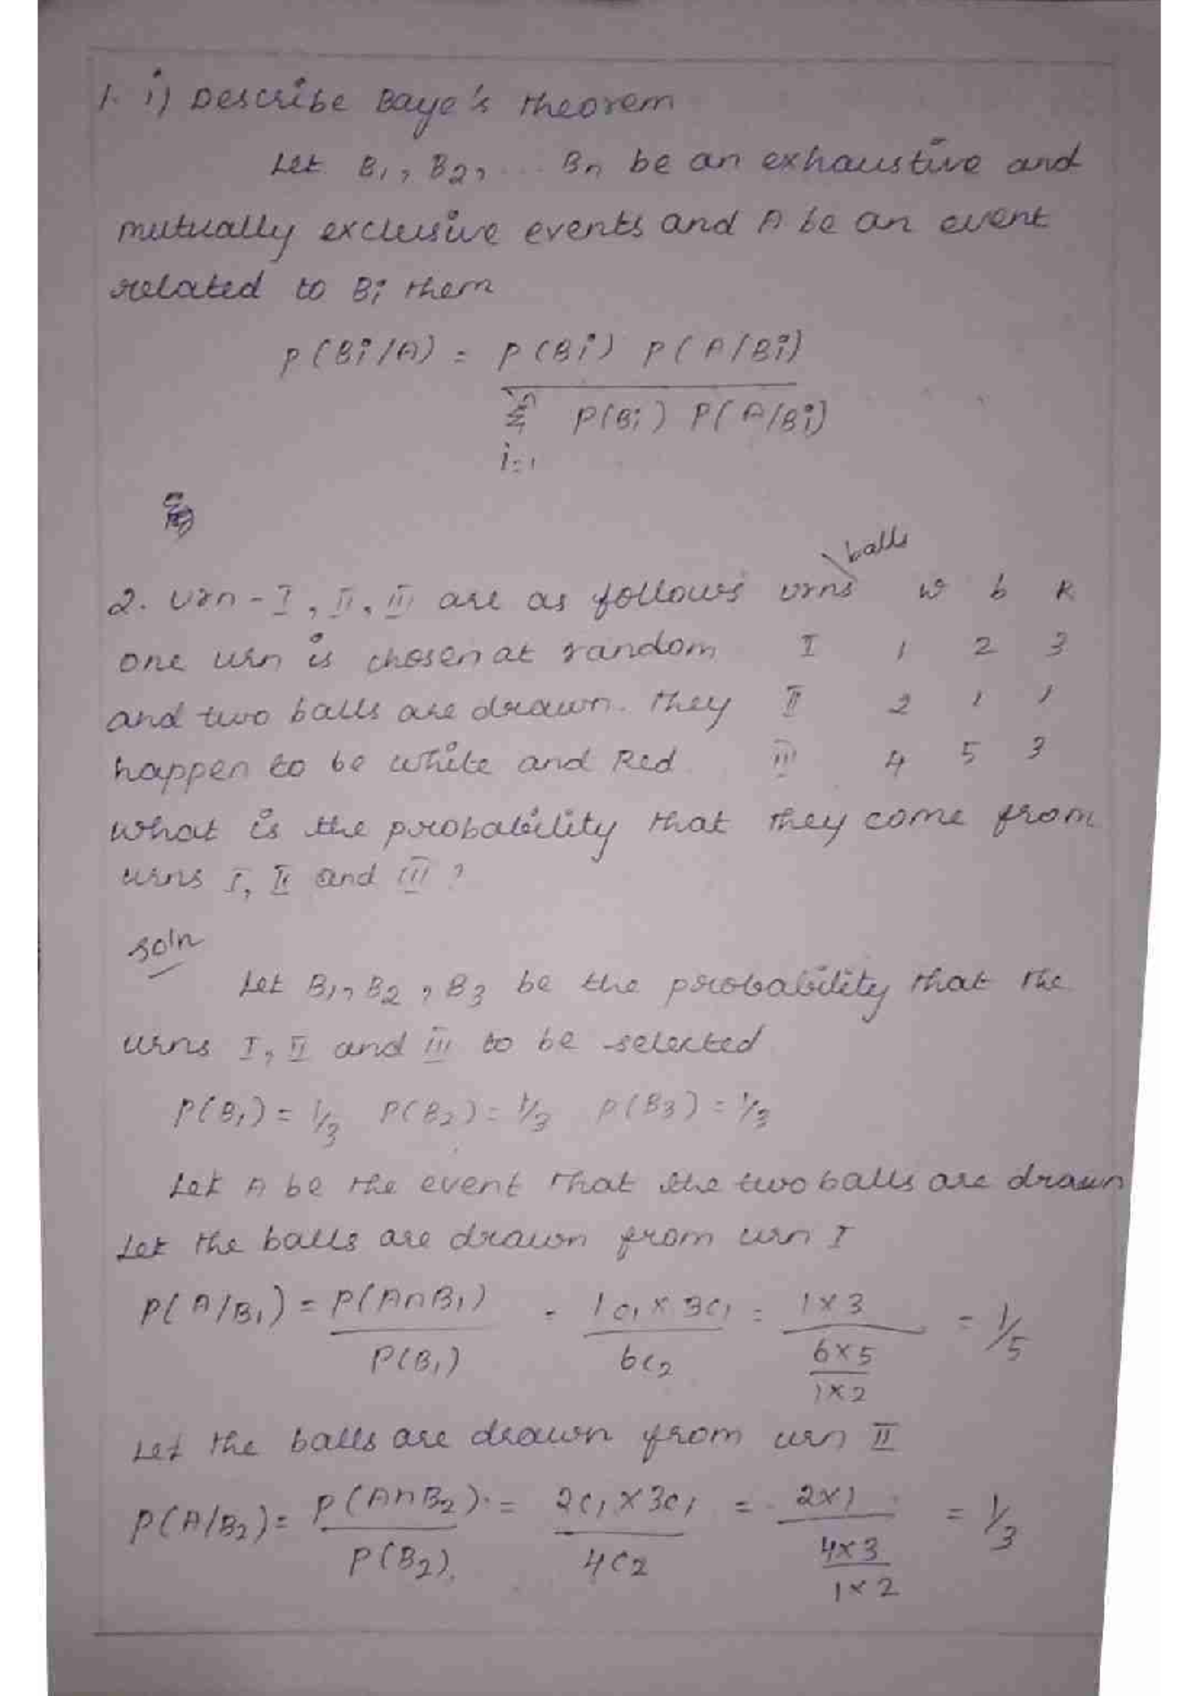 1. i) Describe Baye's theorem
Let B₁, B₂, ... Bn be an exhaustive and
mutually exclusive events and A be an event
related to Bi them
P(Bi/A) = P(Bi) P(A/Bi)
n
Σ P(Bi) P(A/Bi)
i=1
balls
2. urn - I, II, III are as follows urns w b R
one urn is chosen at random I 1 2 3
and two balls are drawn. They II 2 1 1
happen to be white and Red. III 4 5 3
what is the probability that they come from
urns I, II and III?
soln
Let B₁, B₂, B₃ be the probability that the
urns I, II and III to be selected
P(B₁) = 1/3 P(B₂) = 1/3 P(B₃) = 1/3
Let A be the event that the two balls are drawn
Let the balls are drawn from urn I
P(A/B₁) = P(A∩B₁) / P(B₁) = 1C₁ × 3C₁ / 6C₂ = 1×3 / (6×5 / 1×2) = 1/5
Let the balls are drawn from urn II
P(A/B₂) = P(A∩B₂) / P(B₂) = 2C₁ × 3C₁ / 4C₂ = 2×1 / (4×3 / 1×2) = 1/3